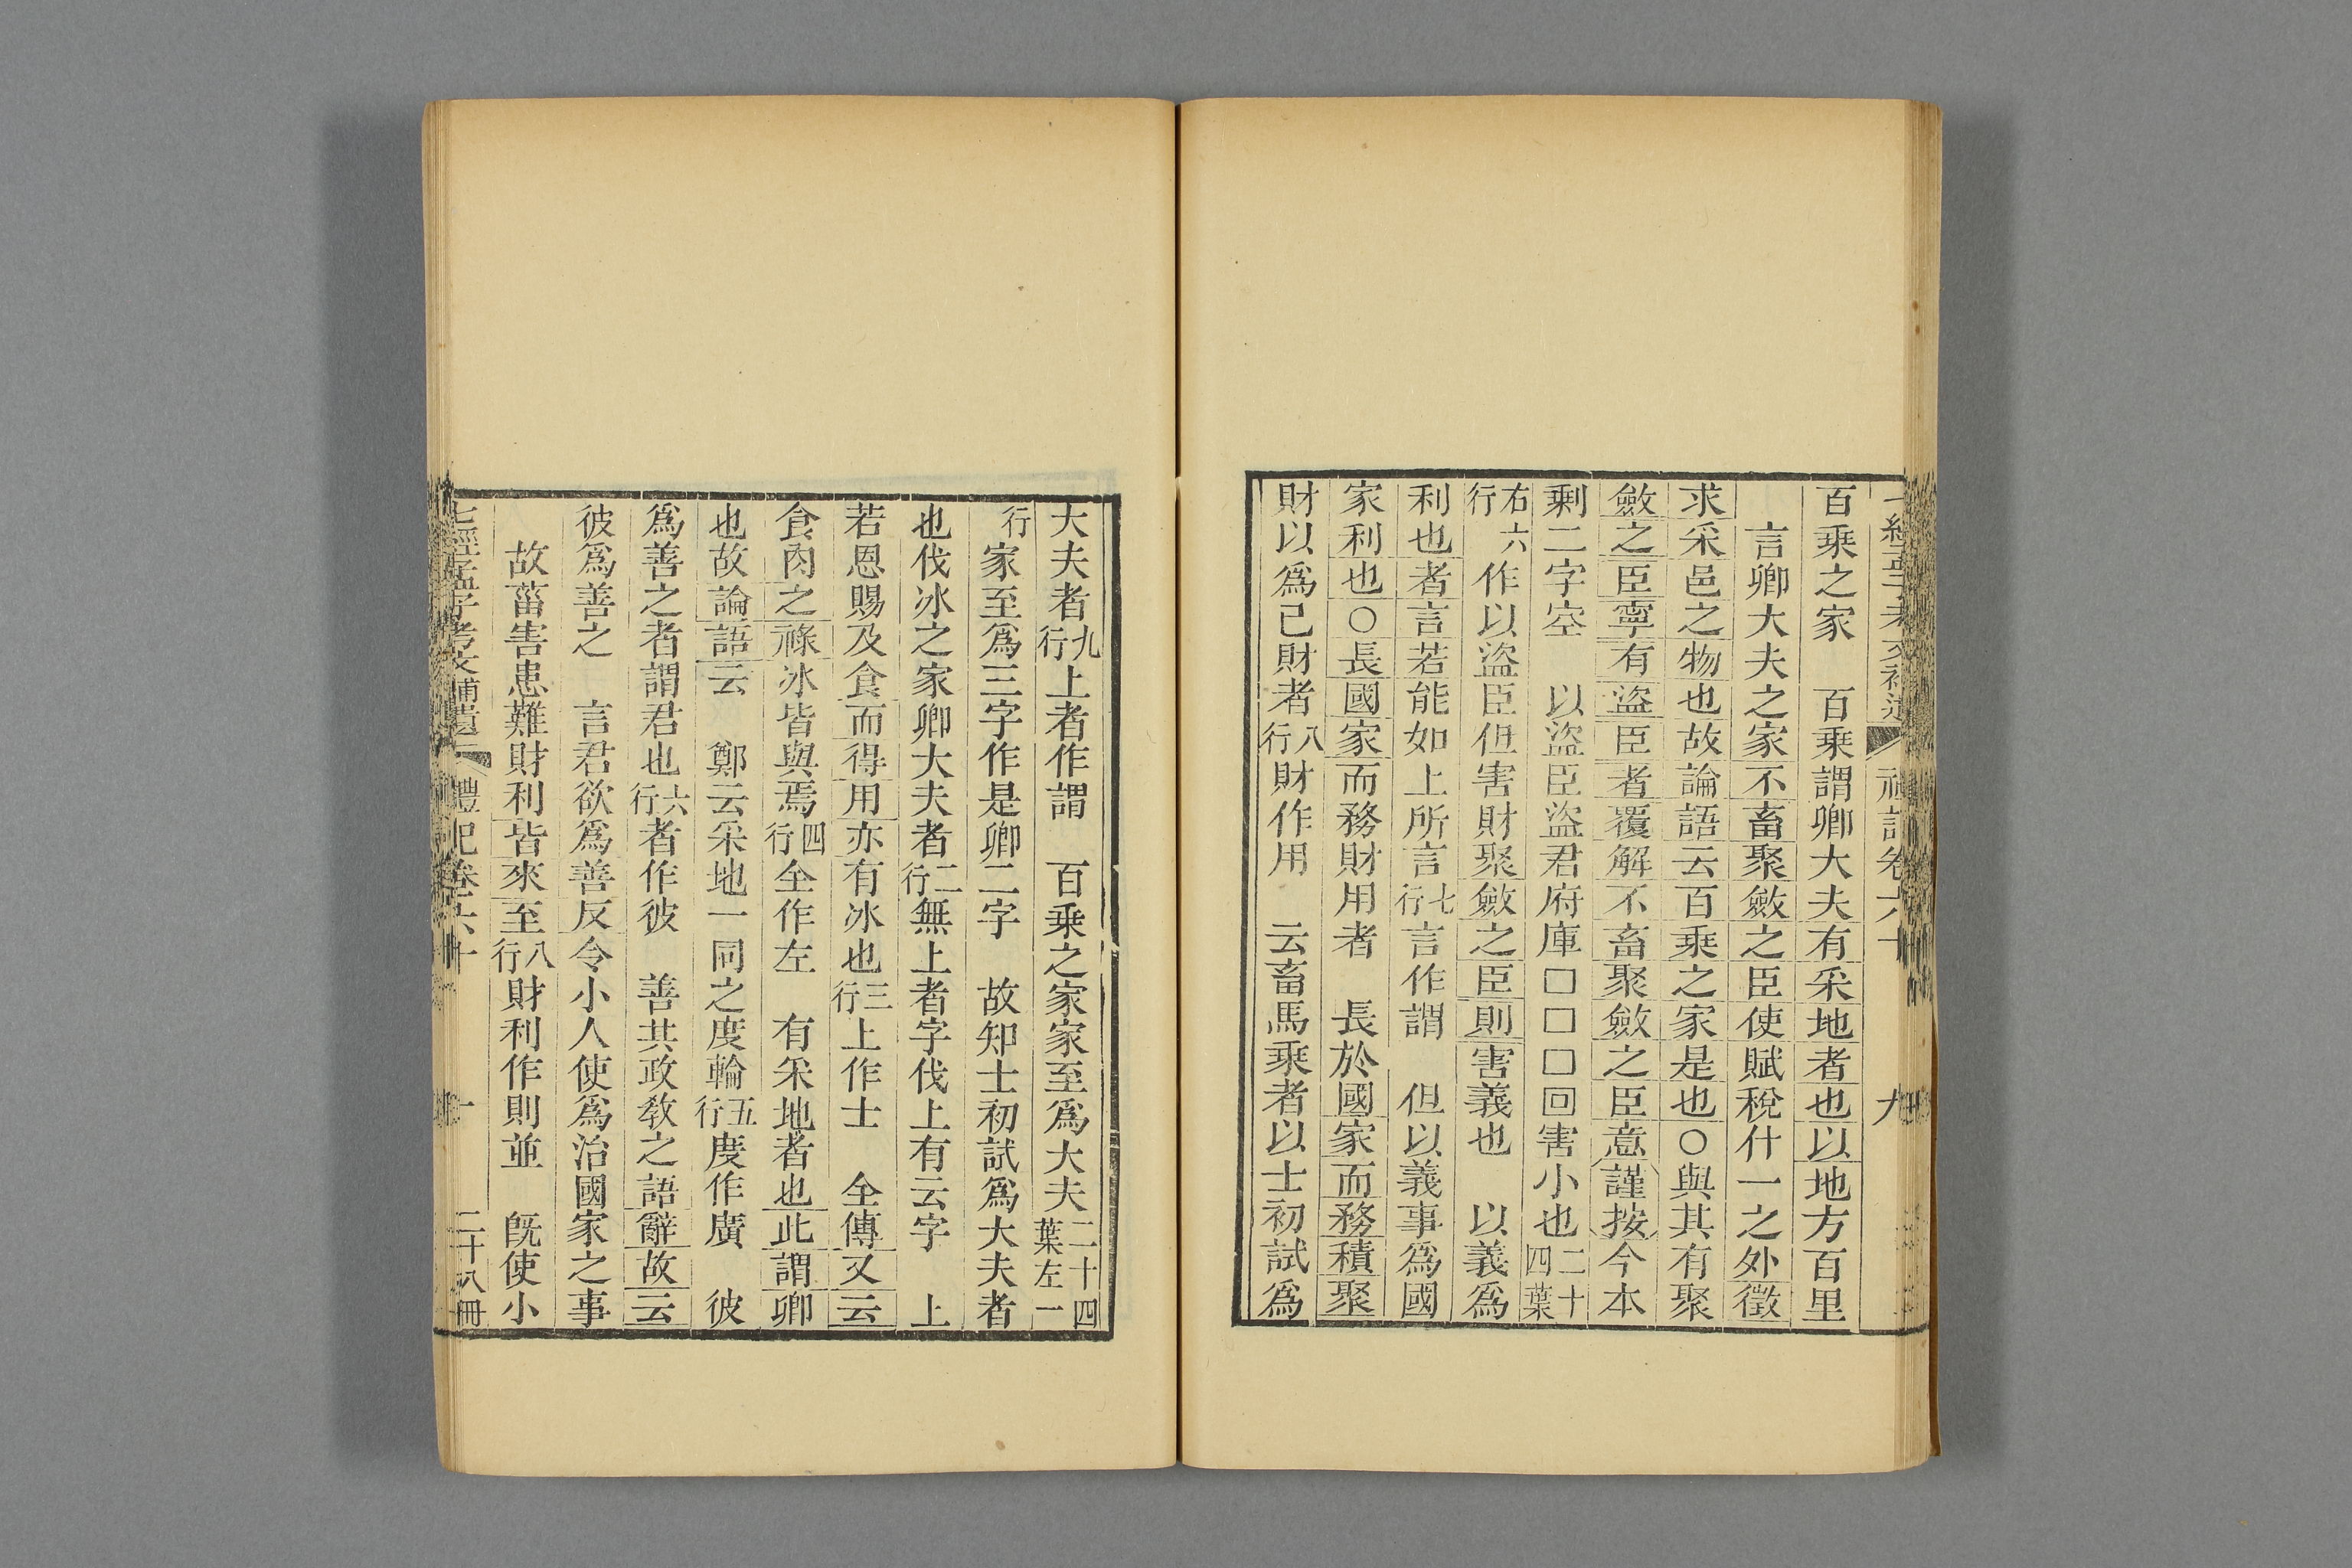 七經孟子考文補遺 禮記卷六十 九
百乘之家　百乘謂卿大夫有采地者也以地方百里
言卿大夫之家不畜聚斂之臣使賦稅什一之外徵
求采邑之物也故論語云百乘之家是也○與其有聚
斂之臣寧有盜臣者覆解不畜聚斂之臣意謹按今本
剩二字空　以盜臣盜君府庫□□□回害小也二十四葉
右六行作以盜臣但害財聚斂之臣則害義也　以義爲
利也者言若能如上所言七行言作謂　但以義事爲國
家利也○長國家而務財用者　長於國家而務積聚
財以爲己財者八行財作用　云畜馬乘者以士初試爲
大夫者九行上者作謂　百乘之家家至爲大夫二十四葉左一
行家至爲三字作是卿二字　故知士初試爲大夫者
也伐冰之家卿大夫者二行無上者字伐上有云字　上
若恩賜及食而得用亦有冰也三行上作士　全傳又云
食肉之祿冰皆與焉四行全作左　有采地者也此謂卿
也故論語云　鄭云采地一同之度輪五行度作廣　彼
爲善之者謂君也六行者作彼　善其政敎之語辭故云
彼爲善之　言君欲爲善反令小人使爲治國家之事
故菑害患難財利皆來至八行財利作則並　旣使小
七經孟子考文補遺 禮記卷六十 十 二十八冊